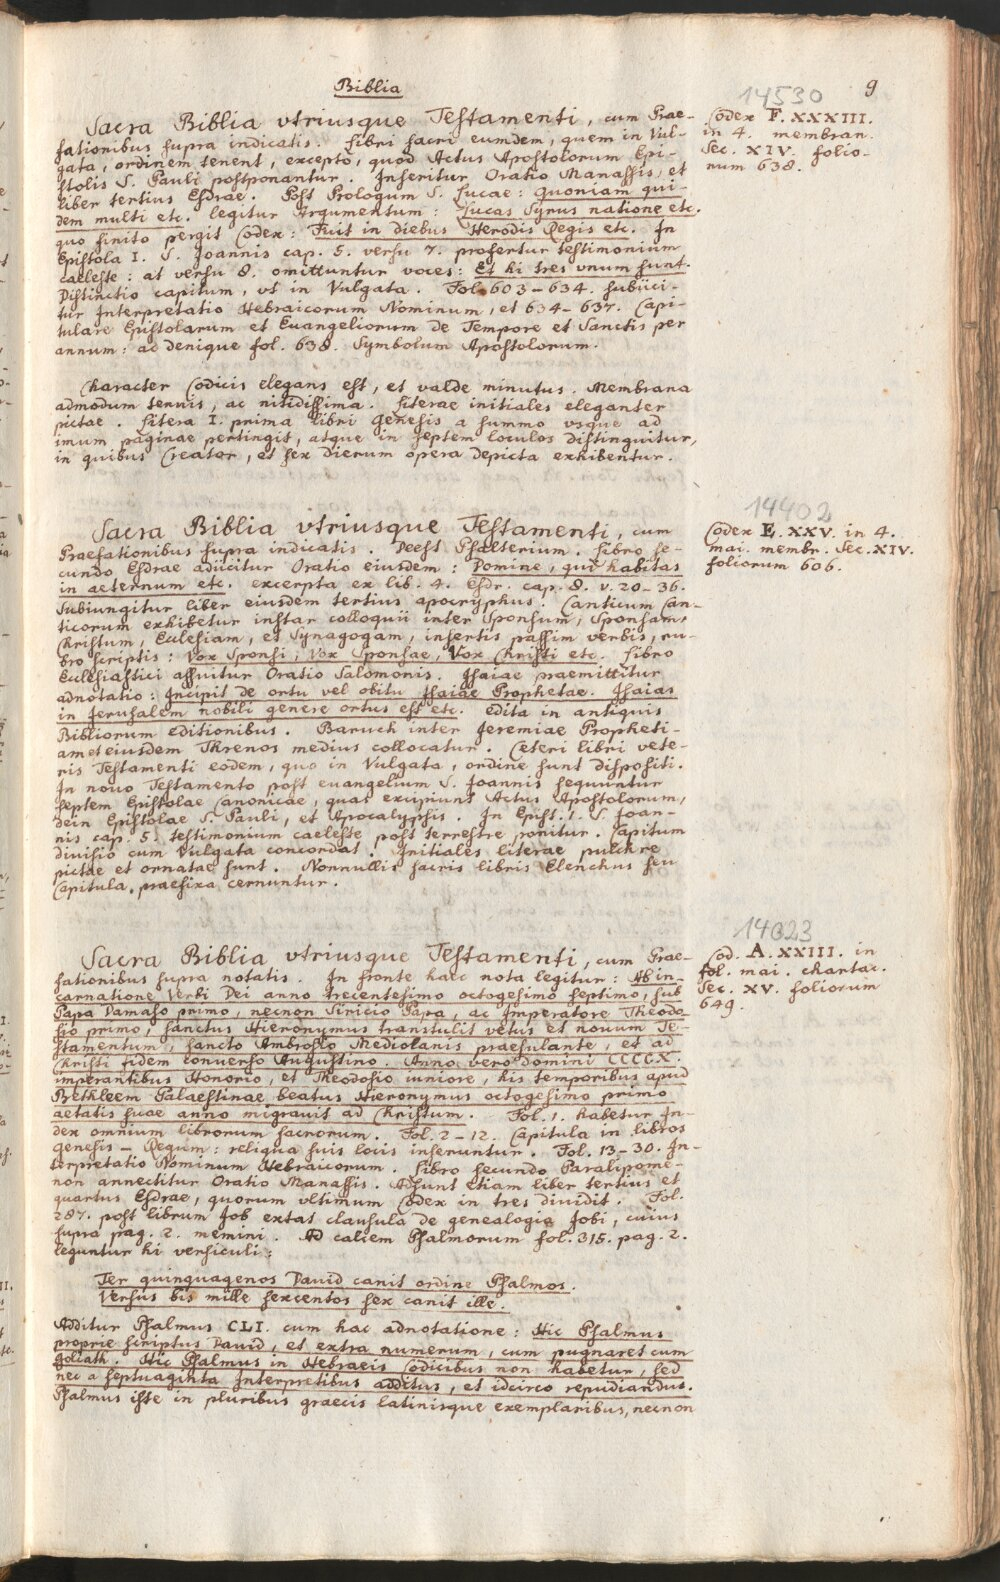 Biblia
9
Sacra Biblia vtriusque Testamenti, cum Prae-
fationibus supra indicatis. Libri sacri eumdem, quem in Vul-
gata, ordinem tenent, excepto, quod Actus Apostolorum Epi-
stolis S. Pauli postponantur. Inseritur Oratio Manassis, et
liber tertius Esdrae. Post Prologum S. Lucae: Quoniam qui-
dem multi etc. legitur Argumentum: Lucas Syrus natione etc.
quo finito pergit Codex: Fuit in diebus Herodis Regis etc. In
Epistola I. S. Joannis cap. 5. versu 7. profertur testimonium
caeleste: at versu 8. omittuntur voces: Et hi tres vnum sunt.
Distinctio capitum, vt in Vulgata. Fol. 603-634. subiici-
tur Interpretatio Hebraicorum Nominum, et 634-637. Capi-
tulare Epistolarum et Euangeliorum de Tempore et Sanctis per
annum: ac denique fol. 638. Symbolum Apostolorum.
14530
Codex F. XXXIII.
in 4. membran.
Sec. XIV. folio-
rum 638.
Character Codicis elegans est, et valde minutus. Membrana
admodum tenuis, ac nitidissima. Literae initiales eleganter
pictae. Litera I. prima libri Genesis a summo vsque ad
imum paginae pertingit, atque in septem loculos distinguitur,
in quibus Creator, et sex dierum opera depicta exhibentur.
Sacra Biblia vtriusque Testamenti, cum
Praefationibus supra indicatis. Deest Psalterium. Libro se-
cundo Esdrae adiicitur Oratio eiusdem: Domine, qui habitas
in aeternum etc. excerpta ex lib. 4. Esdr. cap. 8. v. 20-36.
Subiungitur liber eiusdem tertius apocryphus. Canticum Can-
ticorum exhibetur instar colloquii inter Sponsum, Sponsam,
Christum, Ecclesiam, et Synagogam, insertis passim verbis, ru-
bro scriptis: Vox Sponsi, Vox Sponsae, Vox Christi etc. Libro
Ecclesiastici assuitur Oratio Salomonis. Isaiae praemittitur
adnotatio: Incipit de ortu vel obitu Isaiae Prophetae. Isaias
in Jerusalem nobili genere ortus est etc. edita in antiquis
Bibliorum editionibus. Baruch inter Jeremiae Propheti-
am et eiusdem Threnos medius collocatur. Ceteri libri vete-
ris Testamenti eodem, quo in Vulgata, ordine sunt dispositi.
In nouo Testamento post euangelium S. Joannis sequuntur
septem Epistolae Canonicae, quas excipiunt Actus Apostolorum,
dein Epistolae S. Pauli, et Apocalypsis. In Epist. I. S. Joan-
nis cap. 5. testimonium caeleste post terrestre ponitur. Capitum
diuisio cum Vulgata concordat. Initiales literae pulchre
pictae et ornatae sunt. Nonnullis sacris libris Elenchus seu
Capitula praefixa cernuntur.
14402
Codex E. XXV. in 4.
mai. membr. Sec. XIV.
foliorum 606.
Sacra Biblia vtriusque Testamenti, cum Prae-
fationibus supra notatis. In fronte haec nota legitur: Ab in-
carnatione Verbi Dei anno trecentesimo octogesimo septimo, sub
Papa Damaso primo, necnon Siricio Papa, ac Imperatore Theodo-
sio primo, sanctus Hieronymus transtulit vetus et nouum Te-
stamentum, sancto Ambrosio Mediolanis praesulante, et ad
Christi fidem conuerso Augustino. Anno vero Domini CCCCX.
imperantibus Honorio, et Theodosio iuniore, his temporibus apud
Bethleem Palaestinae beatus Hieronymus octogesimo primo
aetatis suae anno migrauit ad Christum. Fol. 1. habetur In-
dex omnium librorum sacrorum. Fol. 2-12. Capitula in libros
Genesis - Regum: reliqua suis locis inseruntur. Fol. 13-30. In-
terpretatio Nominum Hebraicorum. Libro secundo Paralipome-
non annectitur Oratio Manassis. Adsunt etiam liber tertius et
quartus Esdrae, quorum vltimum Codex in tres diuidit. Fol.
287. post librum Job extat clausula de genealogia Jobi, cuius
supra pag. 2. memini. Ad calcem Psalmorum fol. 315. pag. 2.
leguntur hi versiculi:
14023
Cod. A. XXIII. in
fol. mai. chartac.
Sec. XV. foliorum
649.
Ter quinquagenos Dauid canit ordine Psalmos.
Versus bis mille sexcentos sex canit ille.
Additur Psalmus CLI. cum hac adnotatione: Hic Psalmus
proprie scriptus Dauid, et extra numerum, cum pugnaret cum
Goliath. Hic Psalmus in Hebraeis Codicibus non habetur, sed
nec a septuaginta Interpretibus additus, et idcirco repudiandus.
Psalmus iste in pluribus graecis latinisque exemplaribus, necnon